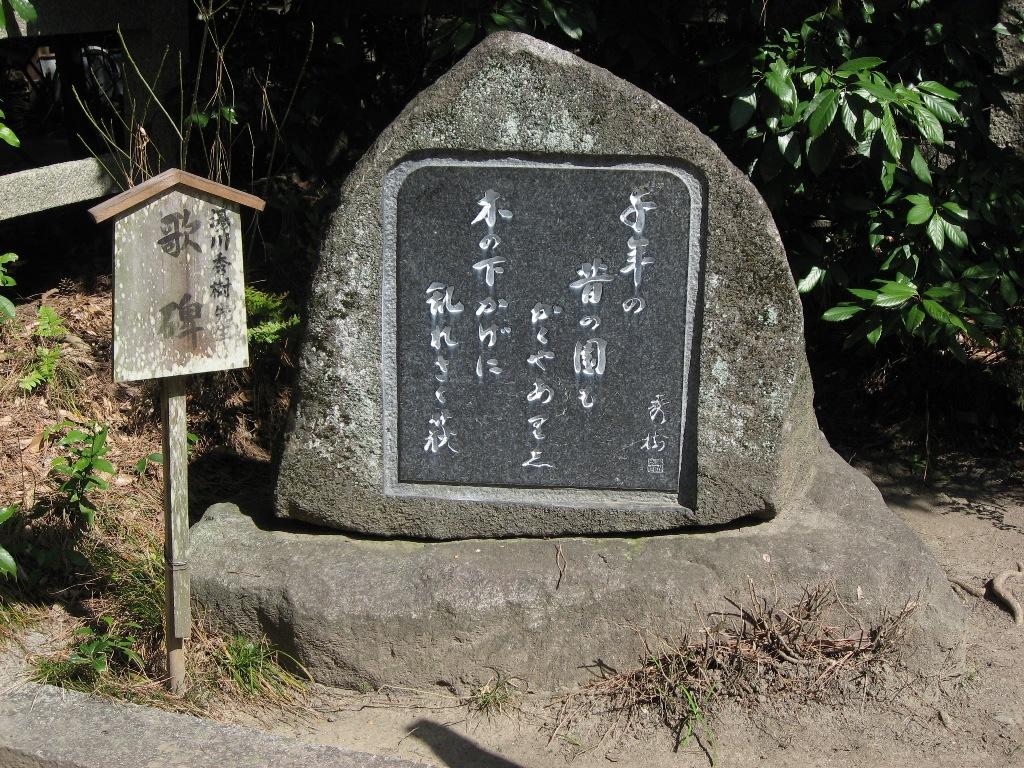 千年の
昔の園も
かくやありし
木の下かげに
乱れさく萩
秀樹
湯川秀樹先生
歌碑